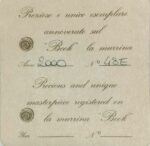 Prezioso e unico esemplare
annoverato sul
"Book" la murrina
Anno 2000 N° 43E
Precious and unique
masterpiece registered on
la murrina "Book"
Year N°